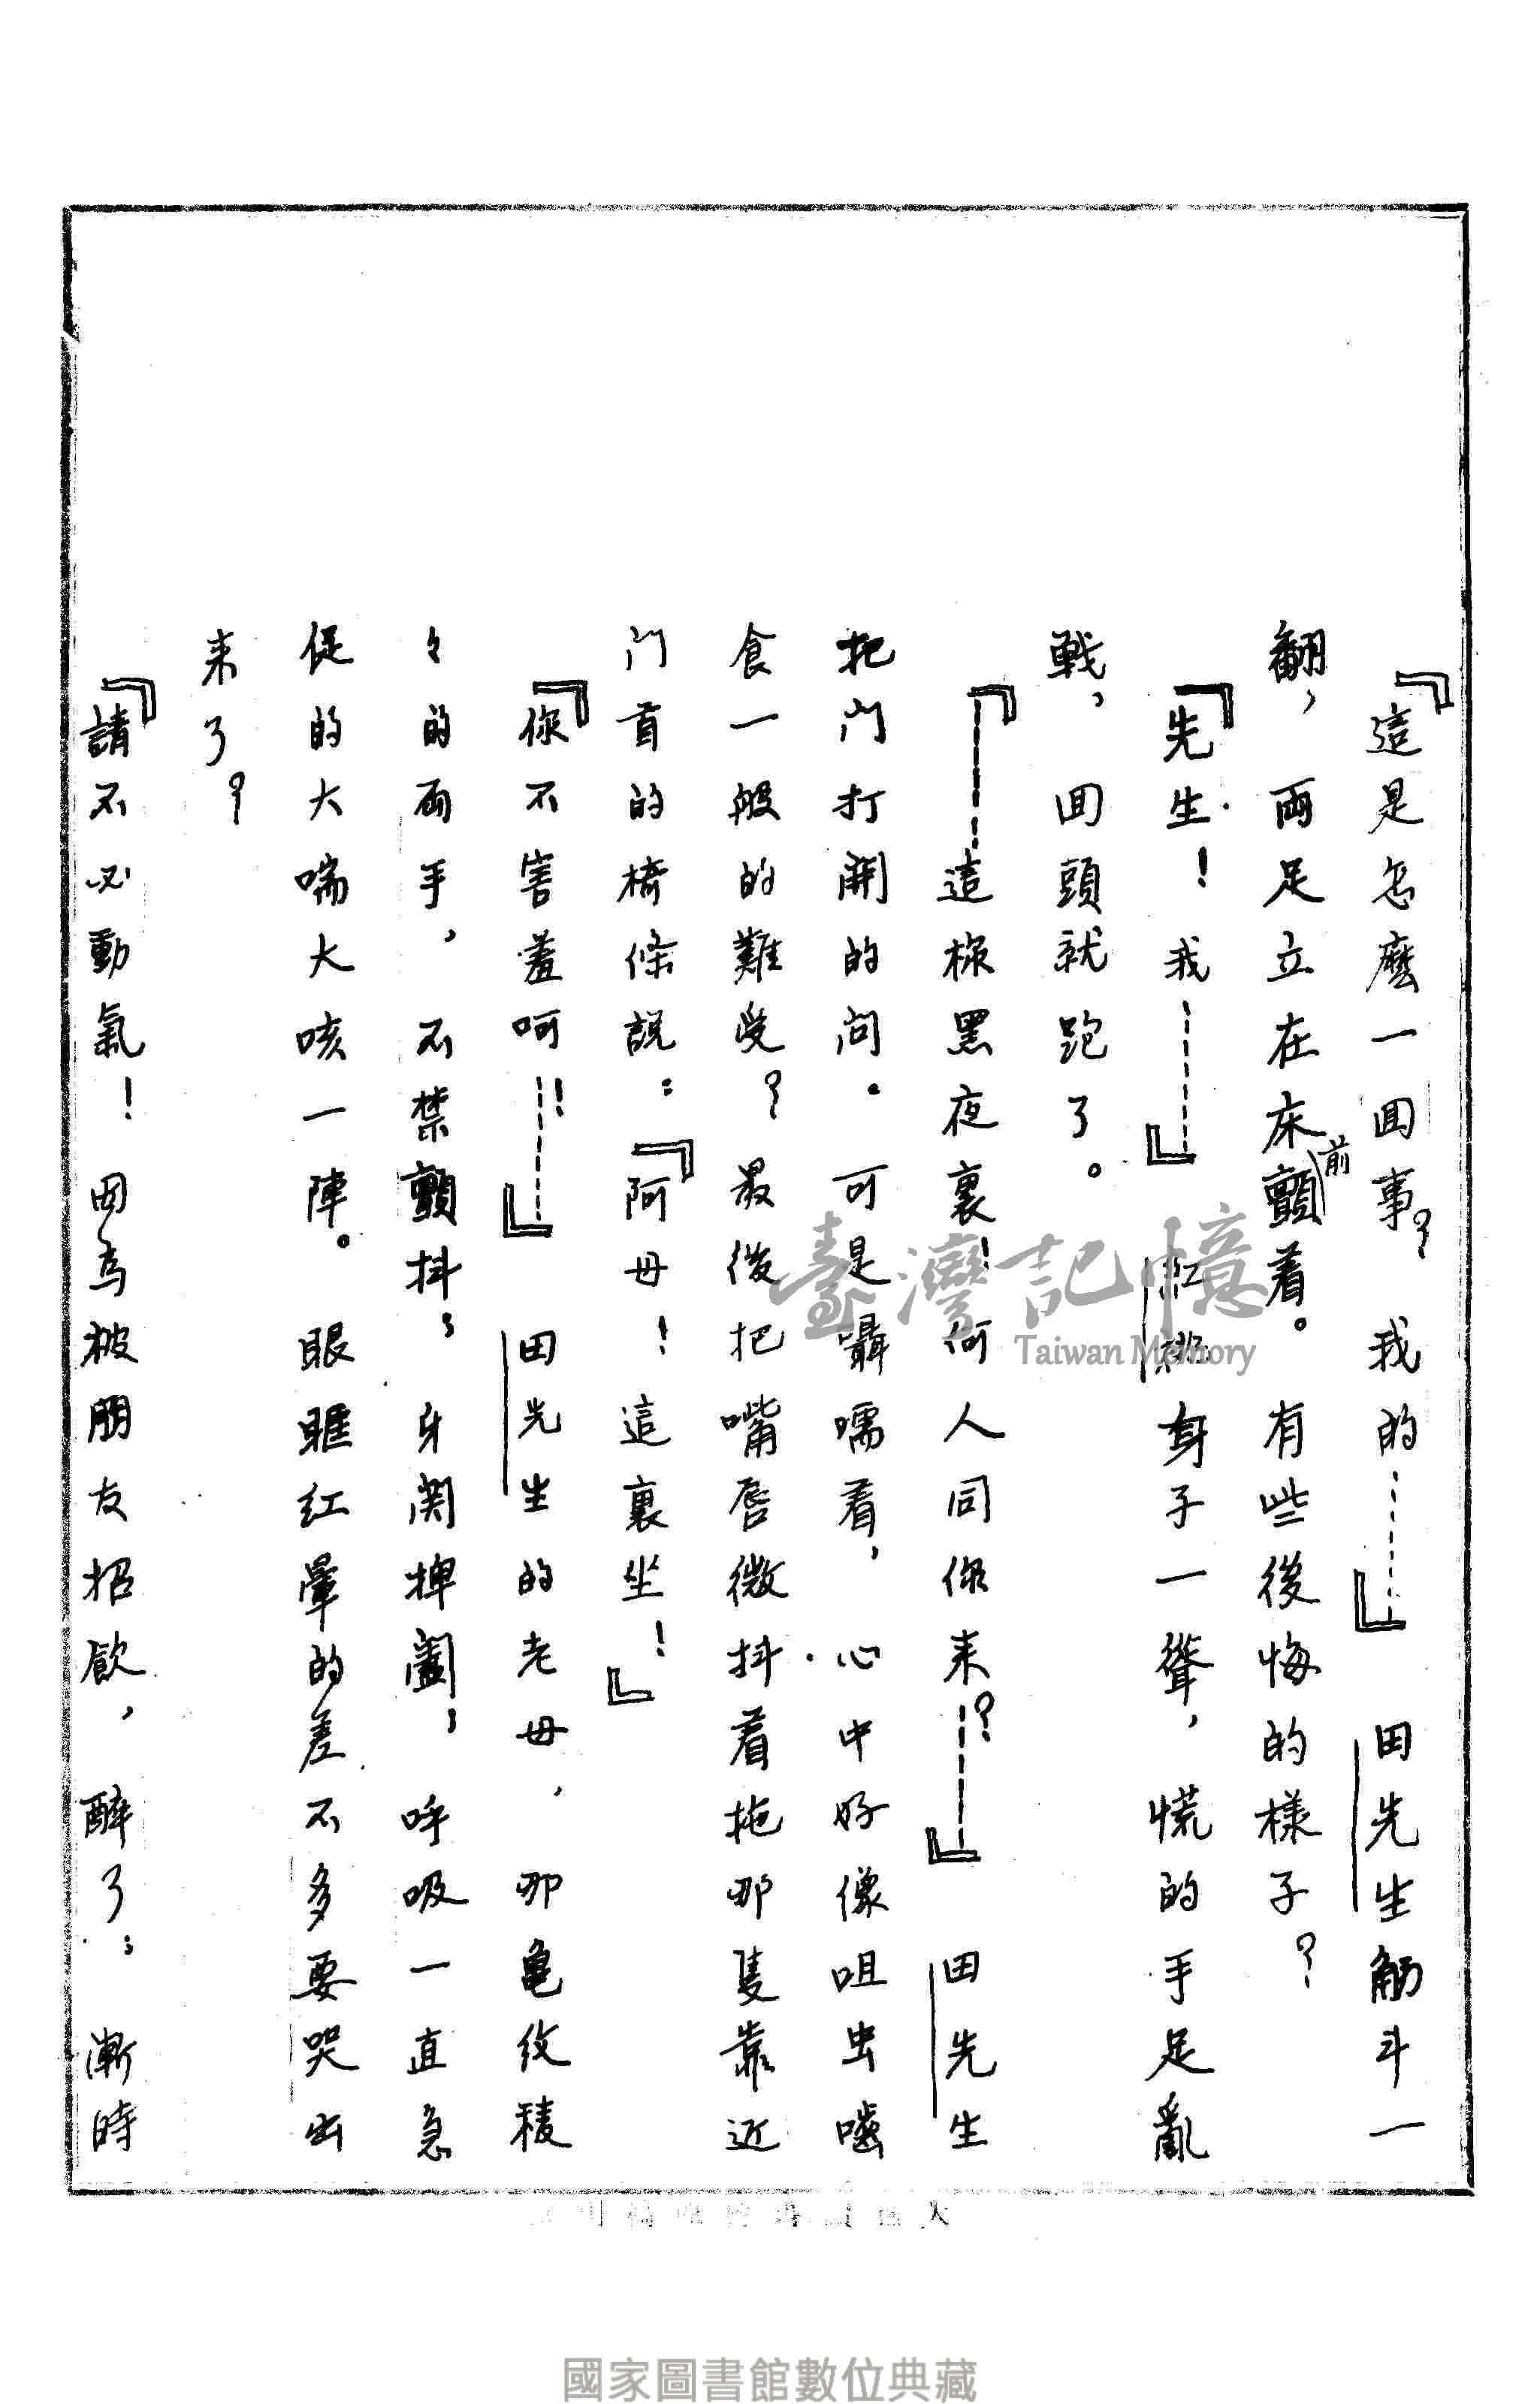 『這是怎麼一囬事？我的……』田先生觔斗一
翻，兩足立在床前顫着。有些後悔的樣子？
『先生！我……』紅桃身子一聳，慌的手足亂
戰，囬頭就跑了。
『……這樣黑夜裏！何人同你来？……』田先生
把门打開的问。可是囁嚅着，心中好像咀虫嚙
食一般的難受？最後把嘴唇微抖着拖那隻靠近
门首的椅條説：『阿母！這裏坐！』
『你不害羞呵！……』田先生的老母，那亀紋稜
々的両手，不禁顫抖；牙関捭闔，呼吸一直急
促的大喘大咳一陣。眼眶红暈的差不多要哭出
来了？
『請不必動氣！因為被朋友招飲，醉了；漸時
臺灣記憶
Taiwan Memory
國家圖書館數位典藏